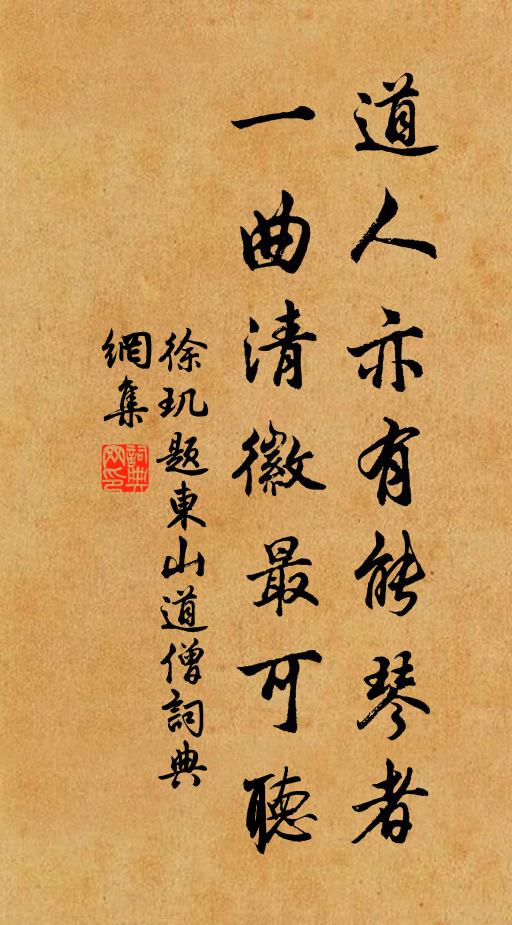 道人亦有能琴者
一曲清徽最可聽
徐玑題東山道僧詞典
網集
詞典網印